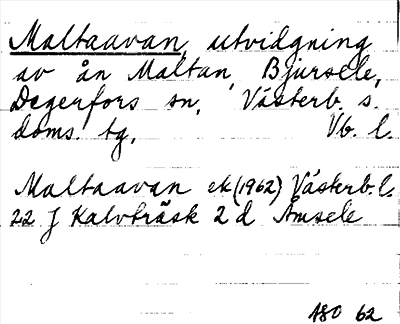 Maltaavan, utvidgning
av ån Maltan, Bjursele,
Degerfors sn, Västerb. s.
doms. tg, Vb. l.
Maltaavan ek (1962) Västerb. l.
22 J Kalvträsk 2 d Åmsele
ÅSO 62